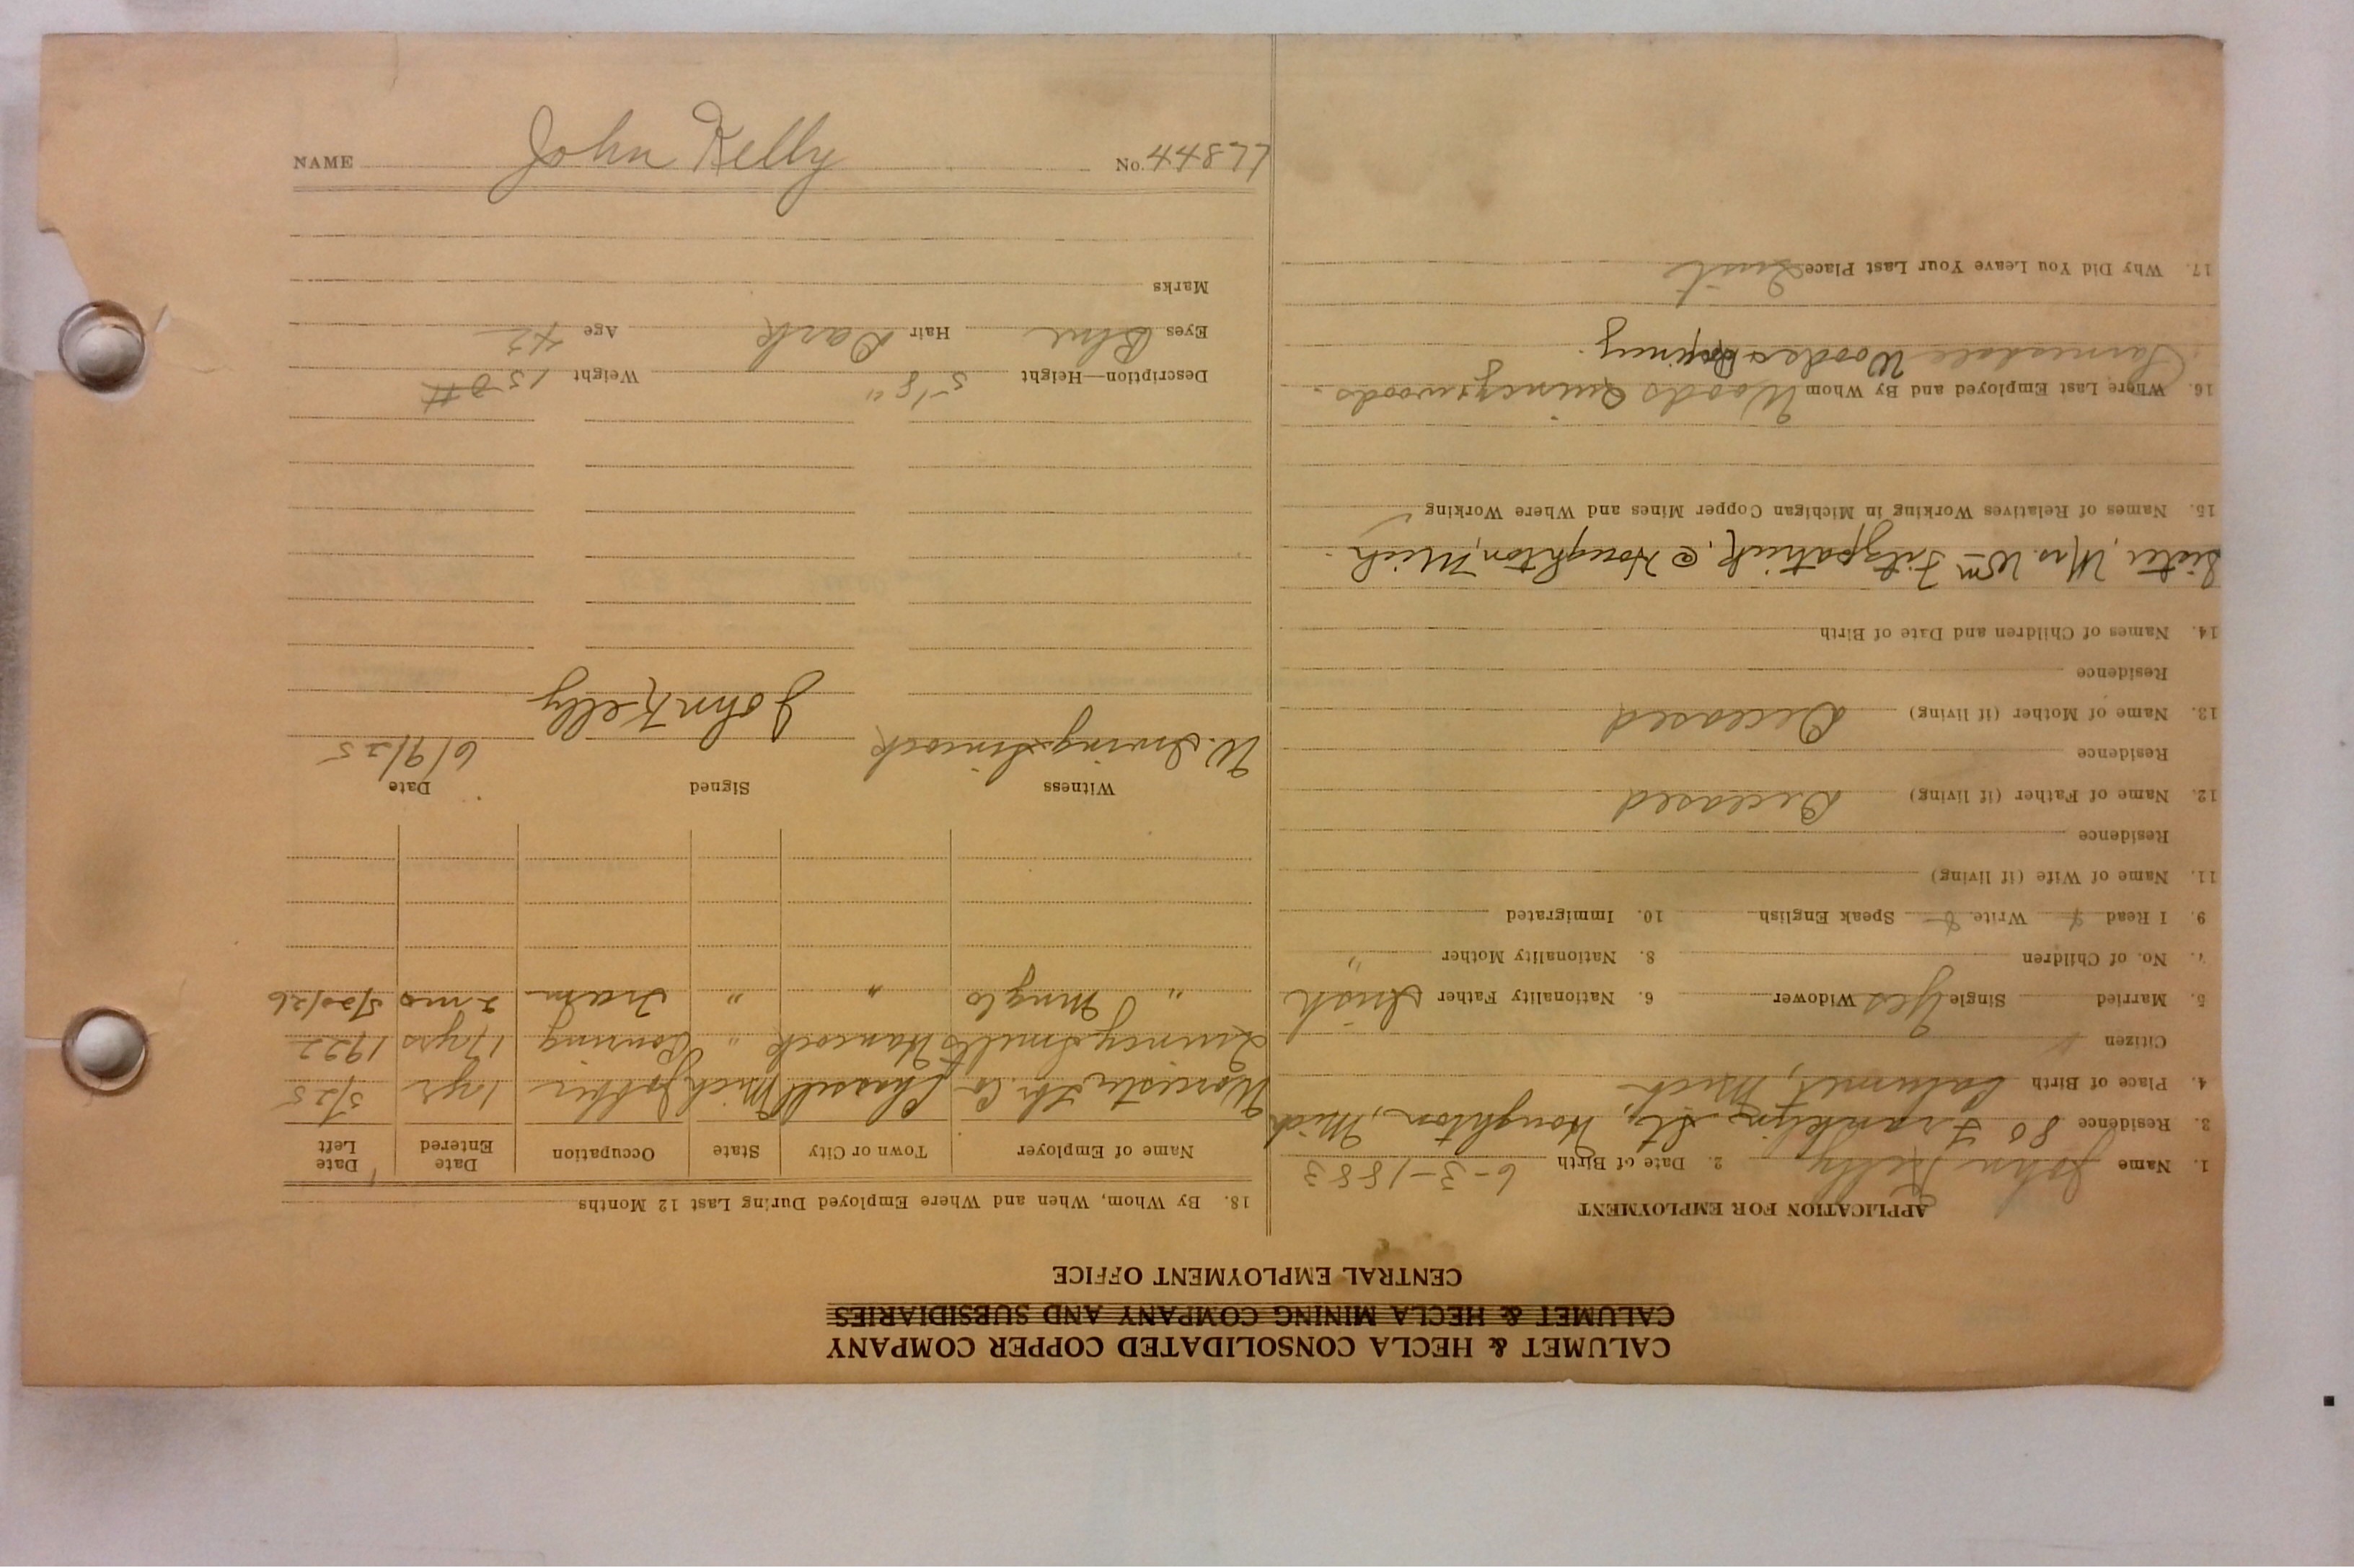 NAME John Kelly No. 44877
CALUMET & HECLA CONSOLIDATED COPPER COMPANY
CALUMET & HECLA MINING COMPANY AND SUBSIDIARIES
CENTRAL EMPLOYMENT OFFICE
APPLICATION FOR EMPLOYMENT
1. Name John Kelly 2. Date of Birth 6-3-1883
3. Residence 80 Franklin St, Houghton, Mich
4. Place of Birth Calumet, Mich
Citizen
5. Married Single Yes Widower 6. Nationality Father Irish
7. No. of Children 8. Nationality Mother "
9. I Read Write Speak English 10. Immigrated
11. Name of Wife (if living)
Residence
12. Name of Father (if living) Deceased
Residence
13. Name of Mother (if living) Deceased
Residence
14. Names of Children and Date of Birth
Sister, Mrs. Wm Fitzpatrick, @ Houghton, Mich.
15. Names of Relatives Working in Michigan Copper Mines and Where Working
16. Where Last Employed and By Whom Woods Quincy woods.
Woods
17. Why Did You Leave Your Last Place Quit
18. By Whom, When and Where Employed During Last 12 Months
Name of Employer Town or City State Occupation Date Entered Date Left
Worcester Lbr. Co Chassell Mich Jobber 1 yr 5/25
Quincy Smelts Hancock " 17 yrs 1922
" Mng Co " " Tram 2 mos 5/20/26
Witness Signed Date
W. Irving Sincock John Kelly 6/9/25
Description—Height 5'8" Weight 150#
Eyes Blue Hair Dark Age 42
Marks